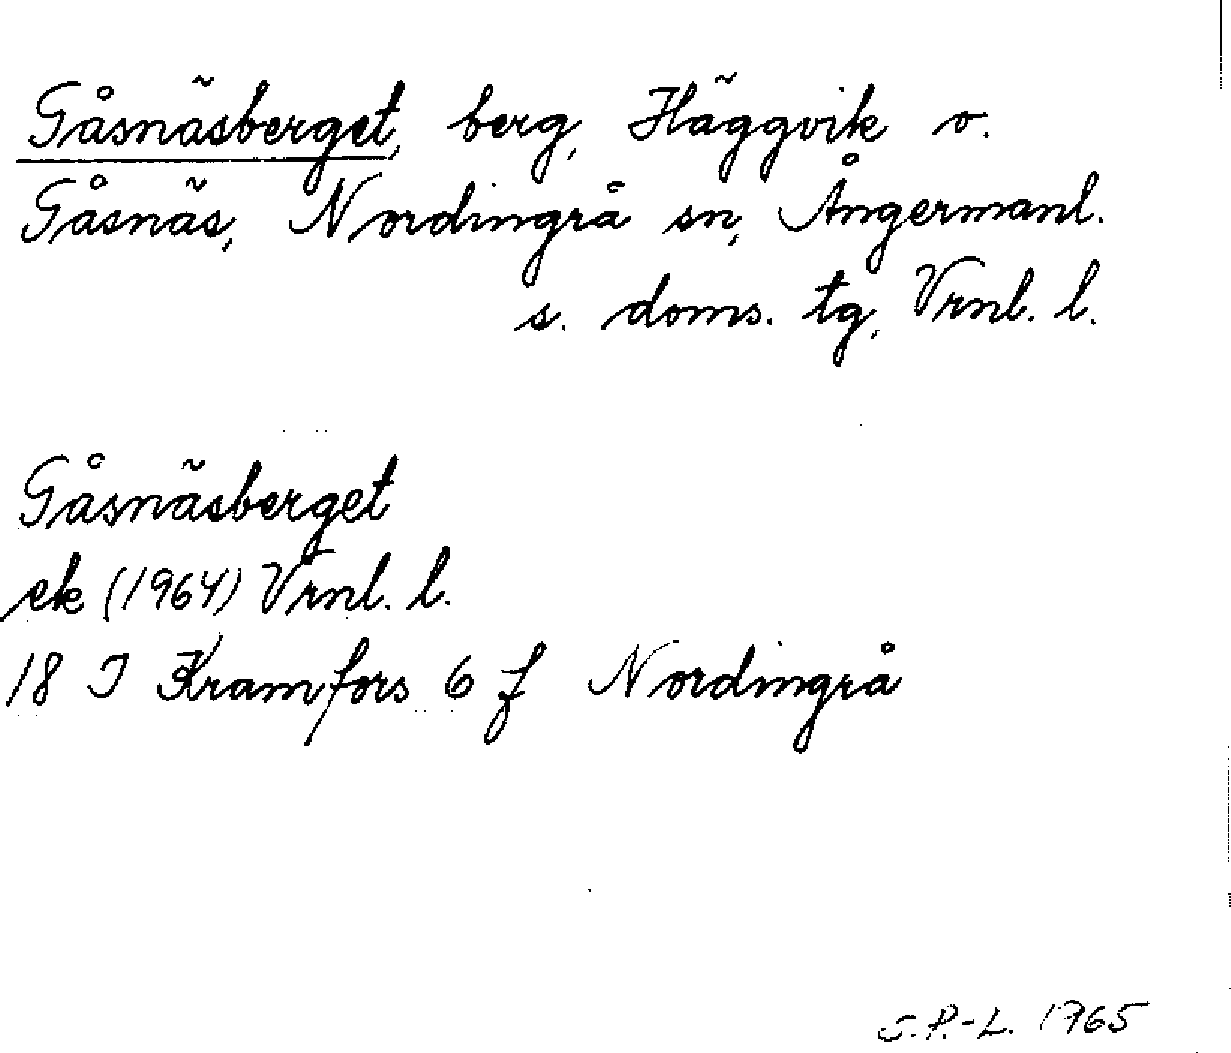 Gåsnäsberget, berg, Häggvik o.
Gåsnäs, Nordingrå sn, Ångermanl.
s. doms. tg, Vrnl. l.
Gåsnäsberget
ek (1964) Vrnl. l.
18 I Kramfors 6 f Nordingrå
S.P.-L. 1965